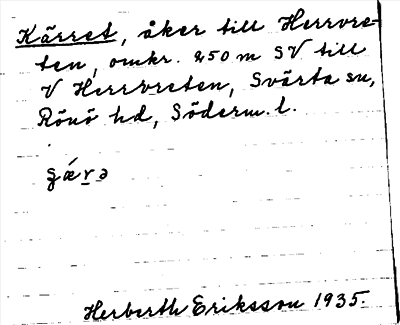 Kärret, åker till Herrvre-
ten, omkr. 250 m SV till
V Herrvreten, Svärta sn,
Rönö hd, Söderm. l.
Herberth Eriksson 1935.